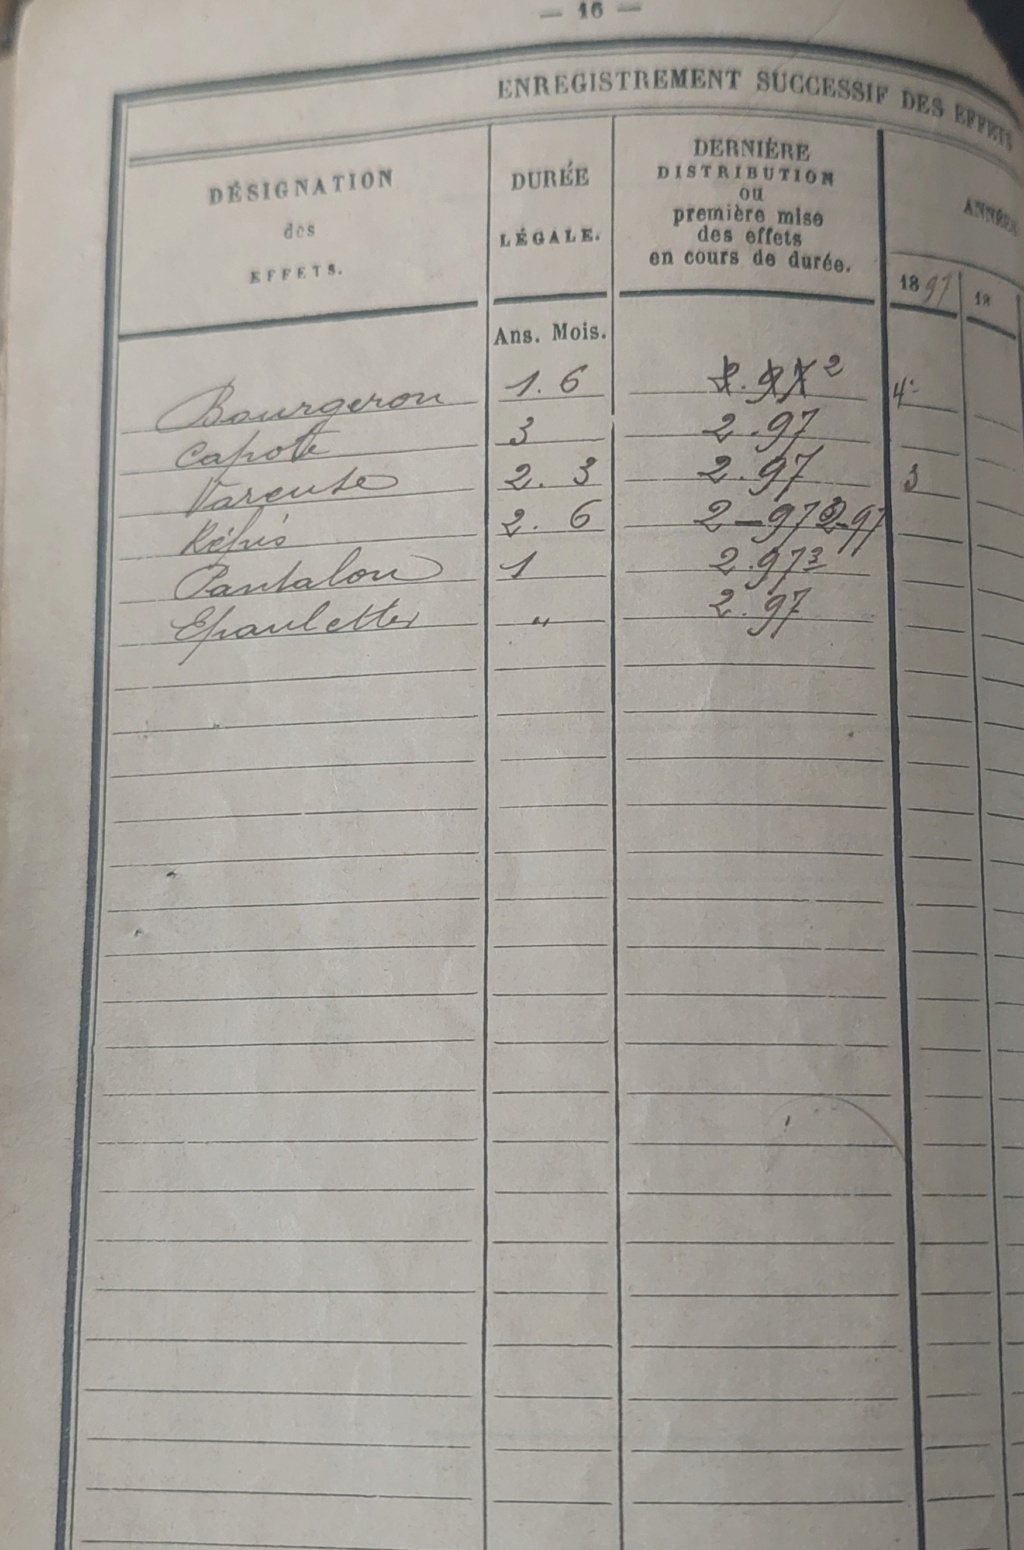 — 16 —
ENREGISTREMENT SUCCESSIF DES EFFETS
DÉSIGNATION
des
EFFETS.
DURÉE
LÉGALE.
DERNIÈRE
DISTRIBUTION
ou
première mise
des effets
en cours de durée.
ANNÉES
1897
18
Ans. Mois.
Bourgeron 1. 6 2
Capote 3 2.97
Vareuse 2. 3 2.97 3
Képis 2. 6 2-97 2-97
Pantalon 1 2.97 3
Epaulettes " 2.97